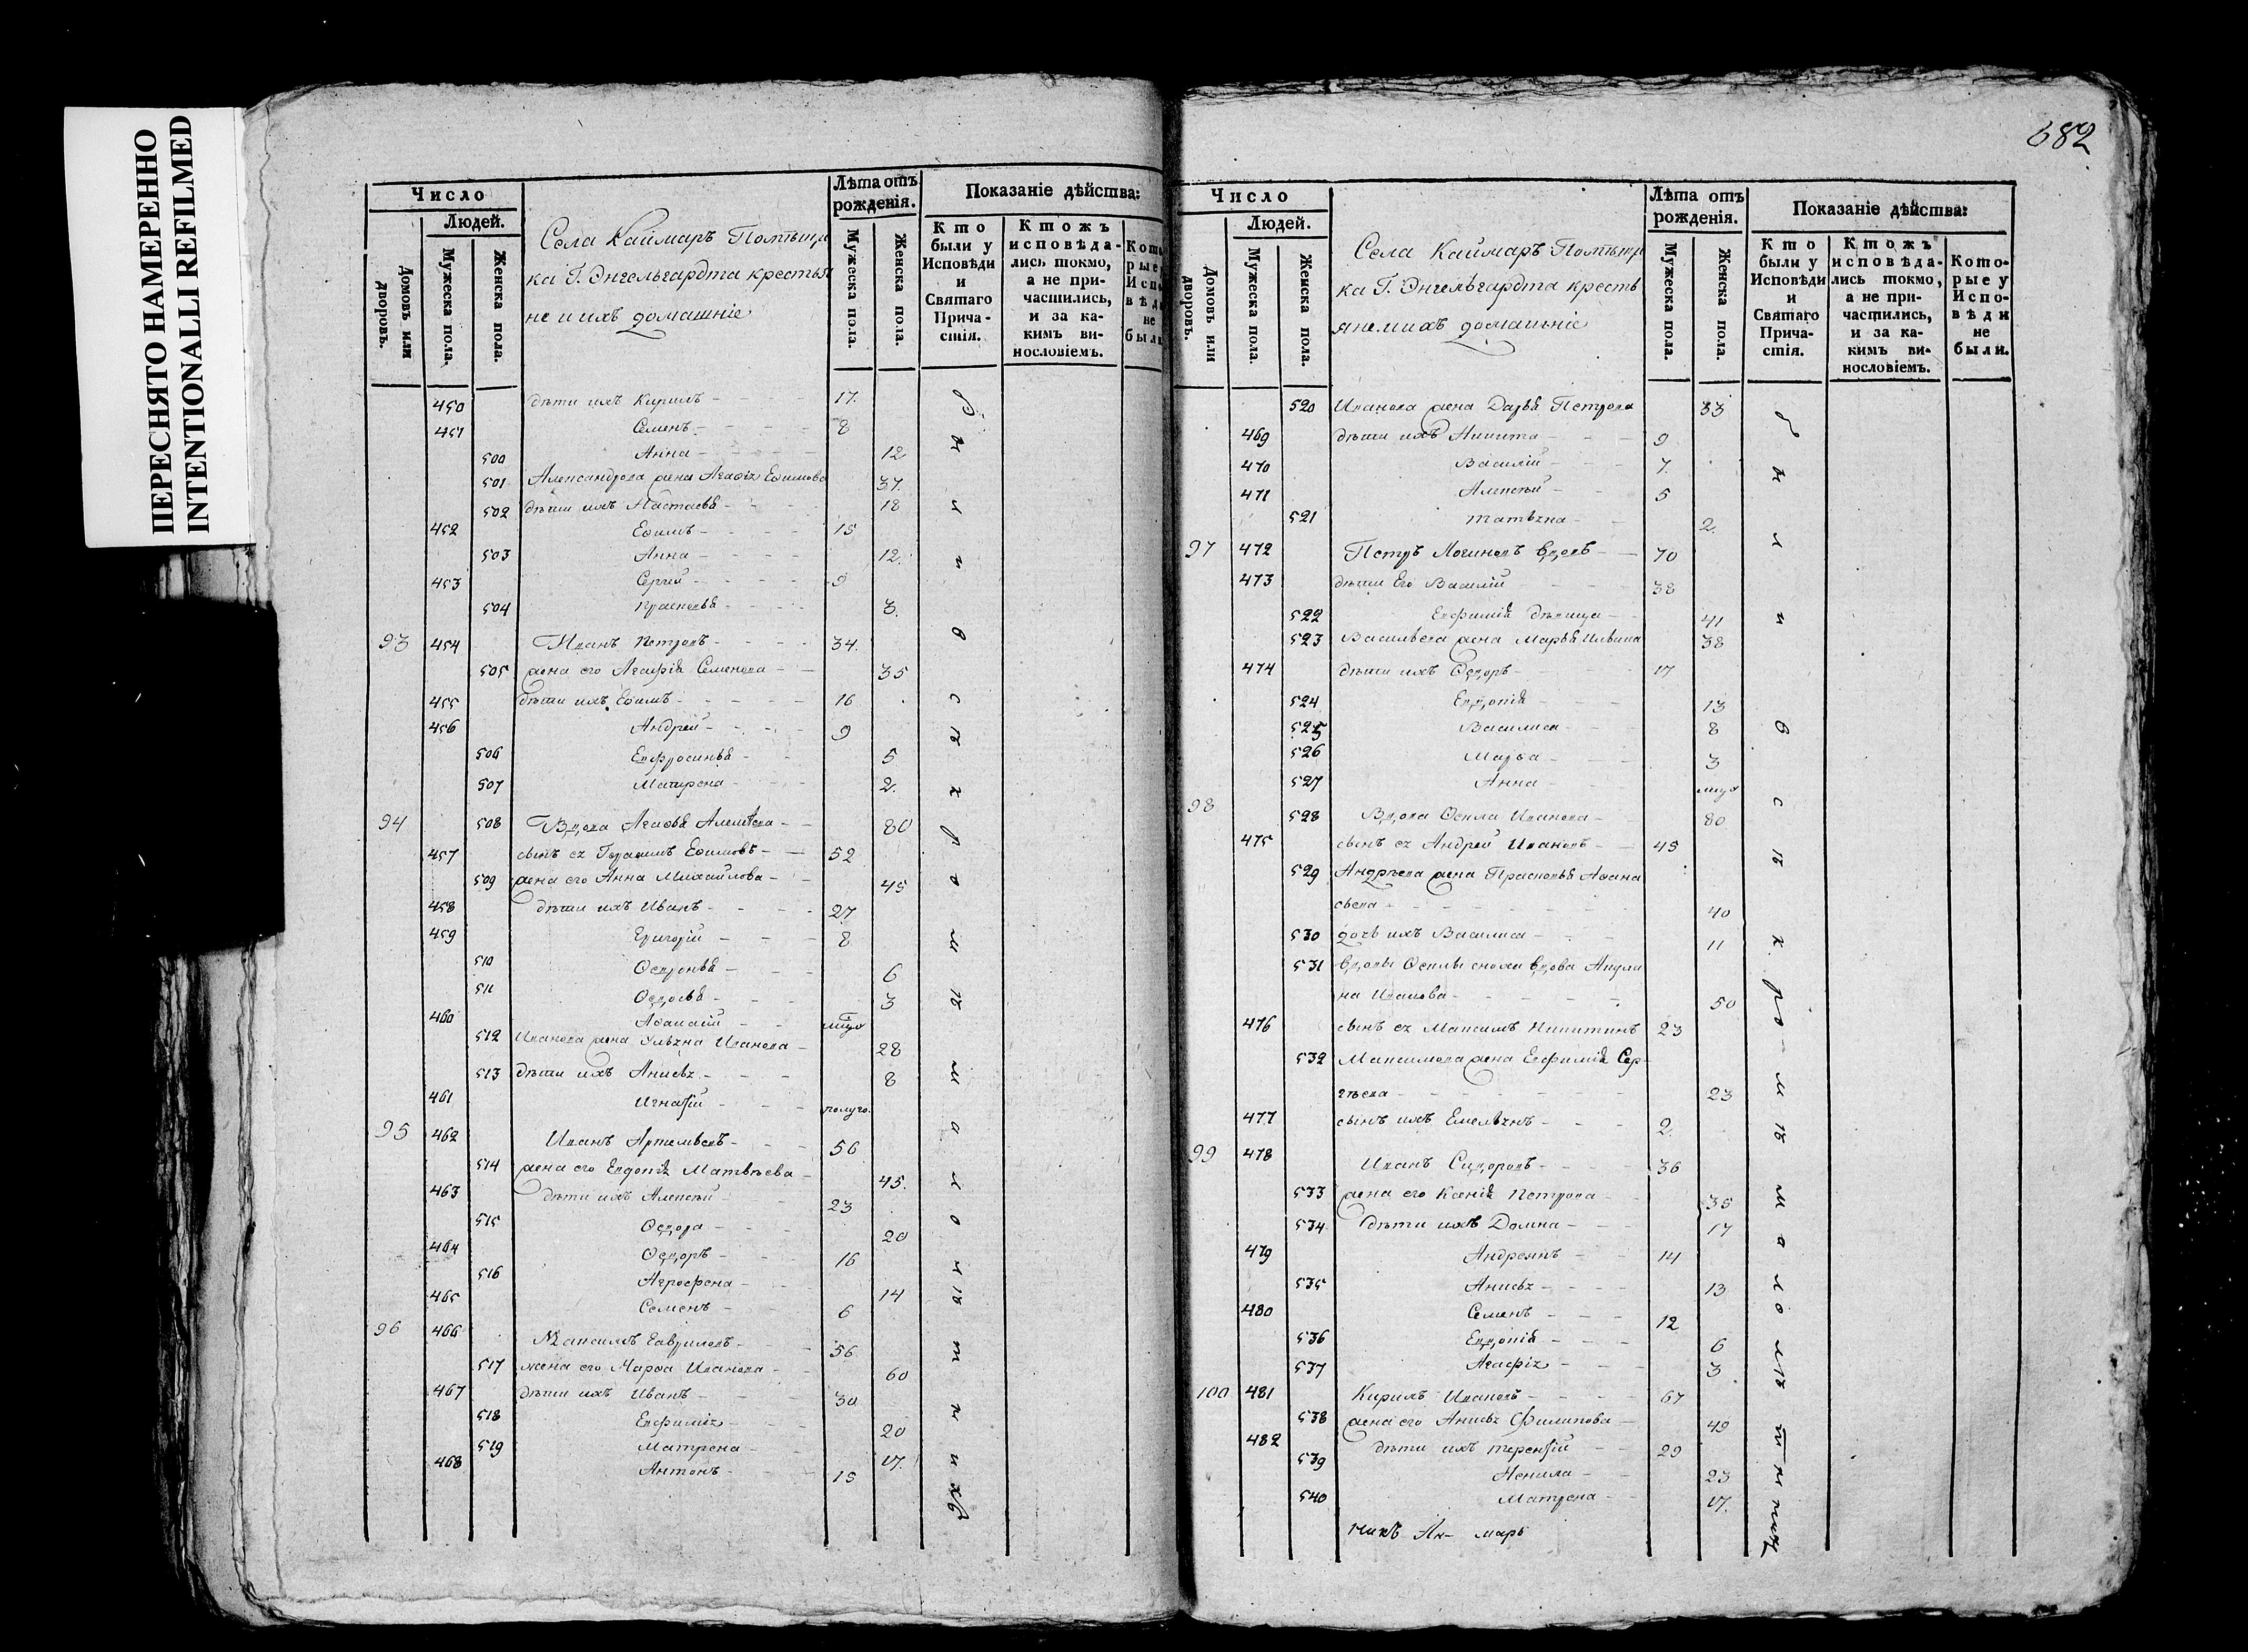 ПЕРЕСНЯТО НАМЕРЕННО
INTENTIONALLI REFILMED
Число
Людей.
Домовъ или дворовъ.
Мужеска пола.
Женска пола.
Села Каймаръ Помѣщи
ка Г. Энгельгардта крестья
не и ихъ домашніе
Лѣта отъ рожденія.
Мужеска пола.
Женска пола.
Показаніе дѣйства:
Кто были у Исповѣди и Святаго Прича-стія.
Ктожъ исповѣда-лись токмо, а не при-частились, и за ка-кимъ ви-нословіемъ.
450 дѣти ихъ Кирилъ 17.
451 Семенъ 8
500 Анна 12
501 Александрова жена Агафія Ефимова 37.
502 дѣти ихъ Настасья 18
452 Ефимъ 15
503 Анна 12.
453 Сергей 9
504 Прасковья 3.
93 454 Иванъ Петровъ 34.
505 жена его Агафія Семенова 35
455 дѣти ихъ Ефимъ 16
456 Андрей 9
506 Евфросинья 5
507 Матрена 2.
94 508 Вдова Агафья Алексѣева 80
457 сынъ ея Герасимъ Ефимовъ 52
509 жена его Анна Михайлова 45
458 дѣти ихъ Иванъ 27
459 Григорій 8
510 6
511 Ѳедосья 3
460 Аѳанасій
512 Иванова жена Ульяна Иванова 28
513 дѣти ихъ Анисья 8
461 Игнатій полуго.
95 462 Иванъ Артемьевъ 56
514 жена его Евдокія Матвѣева 45.
463 дѣти ихъ Алексѣй 23
515 Ѳедора 20
464 Ѳедоръ 16
516 Агрофена 14
465 Семенъ 6
96 466 Максимъ Гавриловъ 56
517 жена его Марѳа Иванова 60
467 дѣти ихъ Иванъ 30
518 Евфимія 20
519 Матрена 17.
468 Антонъ 15
682
Число
Людей.
Домовъ или дворовъ.
Мужеска пола.
Женска пола.
Села Каймаръ Помѣщи
ка Г. Энгельгардта кресть
яне и ихъ домашніе
Лѣта отъ рожденія.
Мужеска пола.
Женска пола.
Показаніе дѣйства:
Кто были у Исповѣди и Святаго Прича-стія.
Ктожъ исповѣда-лись токмо, а не при-частились, и за ка-кимъ ви-нословіемъ.
Кото-рые у Испо-вѣди не были.
520 Иванова жена Дарья Петрова 33
469 дѣти ихъ Никита 9
470 Василій 7.
471 Алексѣй 5
521 Татьяна 2.
97 472 Петръ Логиновъ вдовъ 70
473 дѣти его Василій 38
522 Евфимія дѣвица 41
523 Васильева жена Марья Ильина 38
474 дѣти ихъ Ѳедоръ 17
524 Евдокія 13
525 Василиса 8
526 Марѳа 3
527 Анна
98 528 Вдова Ѳекла Иванова 80
475 сынъ ея Андрей Ивановъ 45
529 Андрѣева жена Прасковья Аѳана
сьева 40
530 дочь ихъ Василиса 11
531 вдовы Ѳеклы сноха вдова Акули
на Иванова 50
476 сынъ ея Максимъ Никитинъ 23
532 Максимова жена Евфимія Сер
гѣева 23
477 сынъ ихъ Емельянъ 2.
99 478 Иванъ Сидоровъ 36
533 жена его Ксенія Петрова 35
534 дѣти ихъ Домна 17
479 Андреянъ 14
535 Анисья 13
480 Семенъ 12
536 Евдокія 6
537 Агафія 3
100 481 Кирилъ Ивановъ 67
538 жена его Анисья Филипова 49
482 дѣти ихъ Терентій 29
539 Ненила 23
540 Матрена 17.